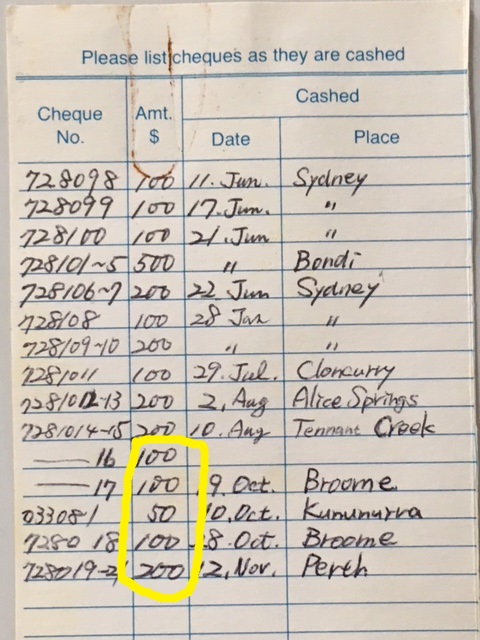 Please list cheques as they are cashed
Cheque No. Amt. $ Cashed
Date Place
728098 100 11. Jun. Sydney
728099 100 17. Jun. "
728100 100 21. Jun "
728101~5 500 " Bondi
728106~7 200 22. Jun Sydney
728108 100 28 Jan "
728109~10 200 " "
7281011 100 29. Jul. Cloncurry
7281012-13 200 2, Aug Alice Springs
7281014-15 200 10. Aug Tennant Creek
—— 16 100
—— 17 100 9. Oct. Broome
033081 50 10. Oct. Kununurra
7280 18 100 28. Oct. Broome
728019-21 200 12. Nov. Perth